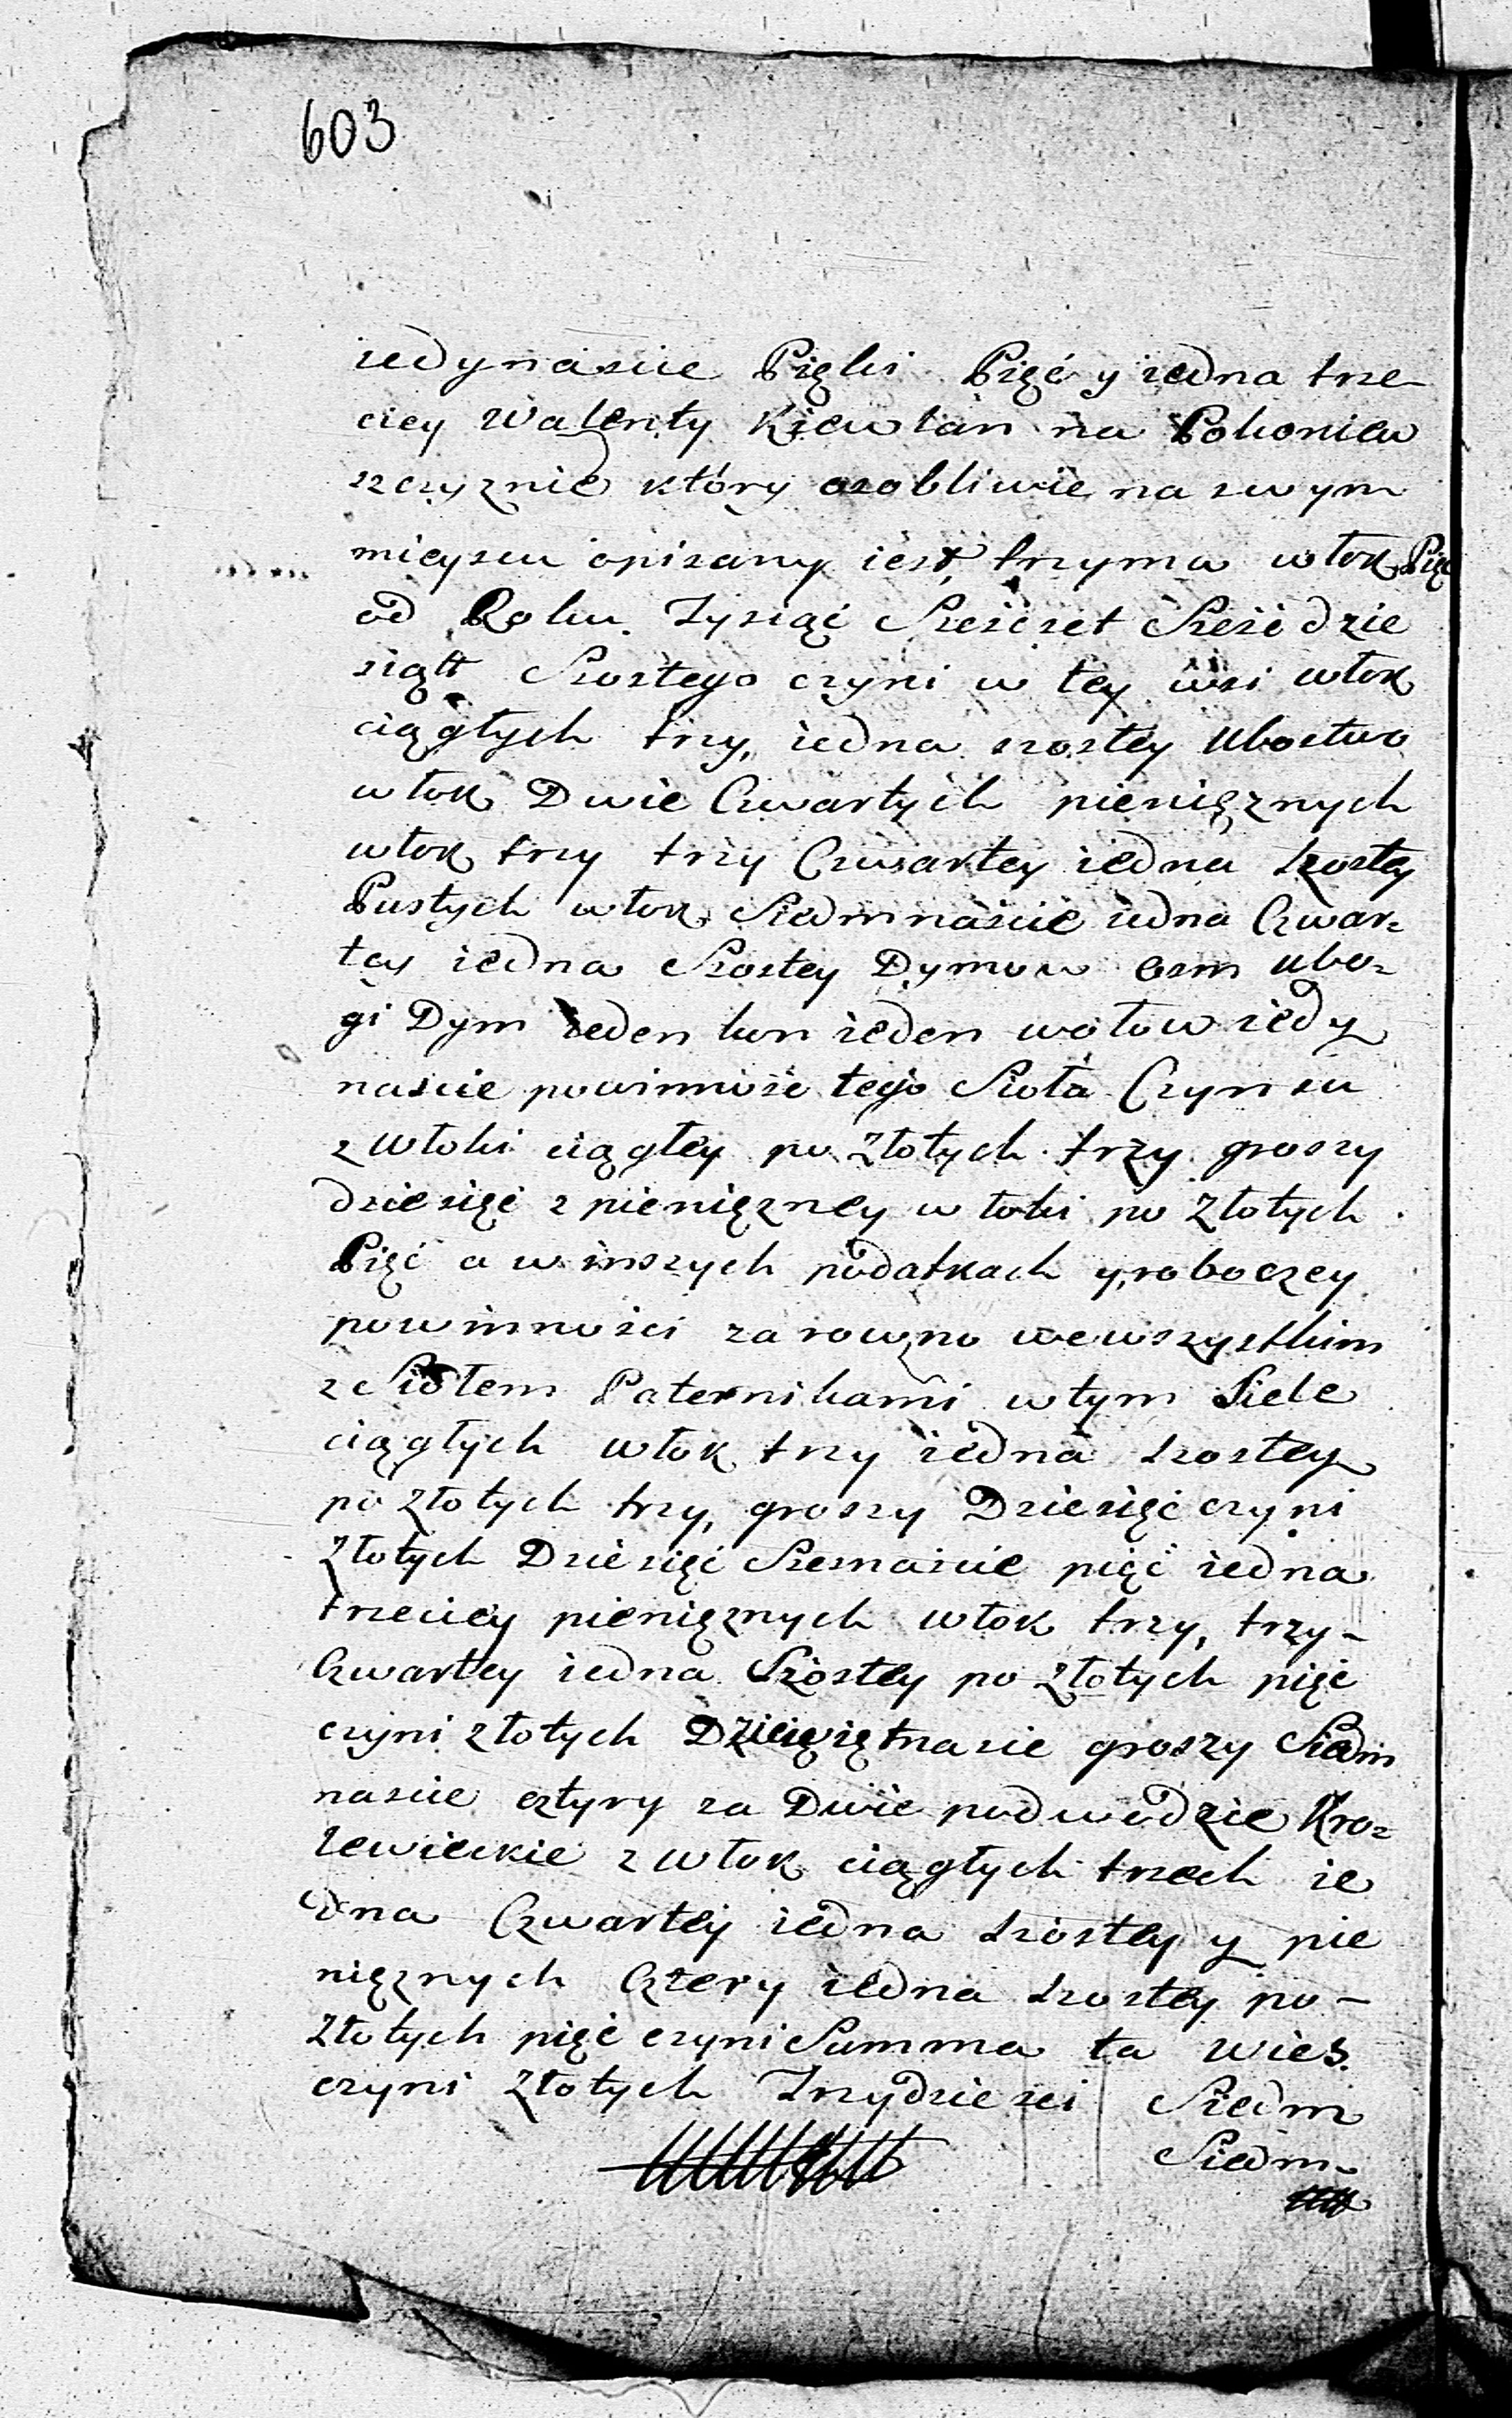 603
iedynascie Piętri Pięć y iedna trze-
ciey Walenty Kiewlan na Pokoniew
szczyznie który osobliwie na swym
mieyscu opisany iest, trzyma włok Pięć
od Roku Tysiąc Sześcset Sześćdzie
siątt Szostego czyni w tey wsi włok
ciągłych trzy, iedna szostey Ubostwo
włok Dwie Czwartych pieniężnych
włok trzy trzy Czwartey iedna szostey
Pustych włok Siedmnaście iedna Czwar=
tey iedna Szostey Dymow osm ubo=
gi Dym ieden kon ieden wołow iedy
nascie powinnośc tego Sioła Czynsu
z Włoki ciągłey po Złotych trzy groszy
dziesięć z pieniężney włoki po Złotych
Pięć a w inszych podatkach y roboczey
powinności zarowno we wszystkim
z Siołem Paternikami w tym Siele
ciągłych włok trzy iedna szostey
po złotych trzy, groszy Dziesięć czyni
Złotych Dziesięć Szesnaście pięć iedna
trzeciey pieniężnych włok trzy, trzy-
Czwartey iedna Szostey po złotych pięć
czyni złotych Dziewiętnascie groszy Siedm
nascie cztyry za Dwie podwodzie Kro=
lewieckie z włok ciągłych trzech ie
dna Czwartey iedna szostey y pie
niężnych Cztery iedna szostey po-
złotych pięć czyni Summa ta wies
czyni Złotych Trzydziesci Siedm
Siedm